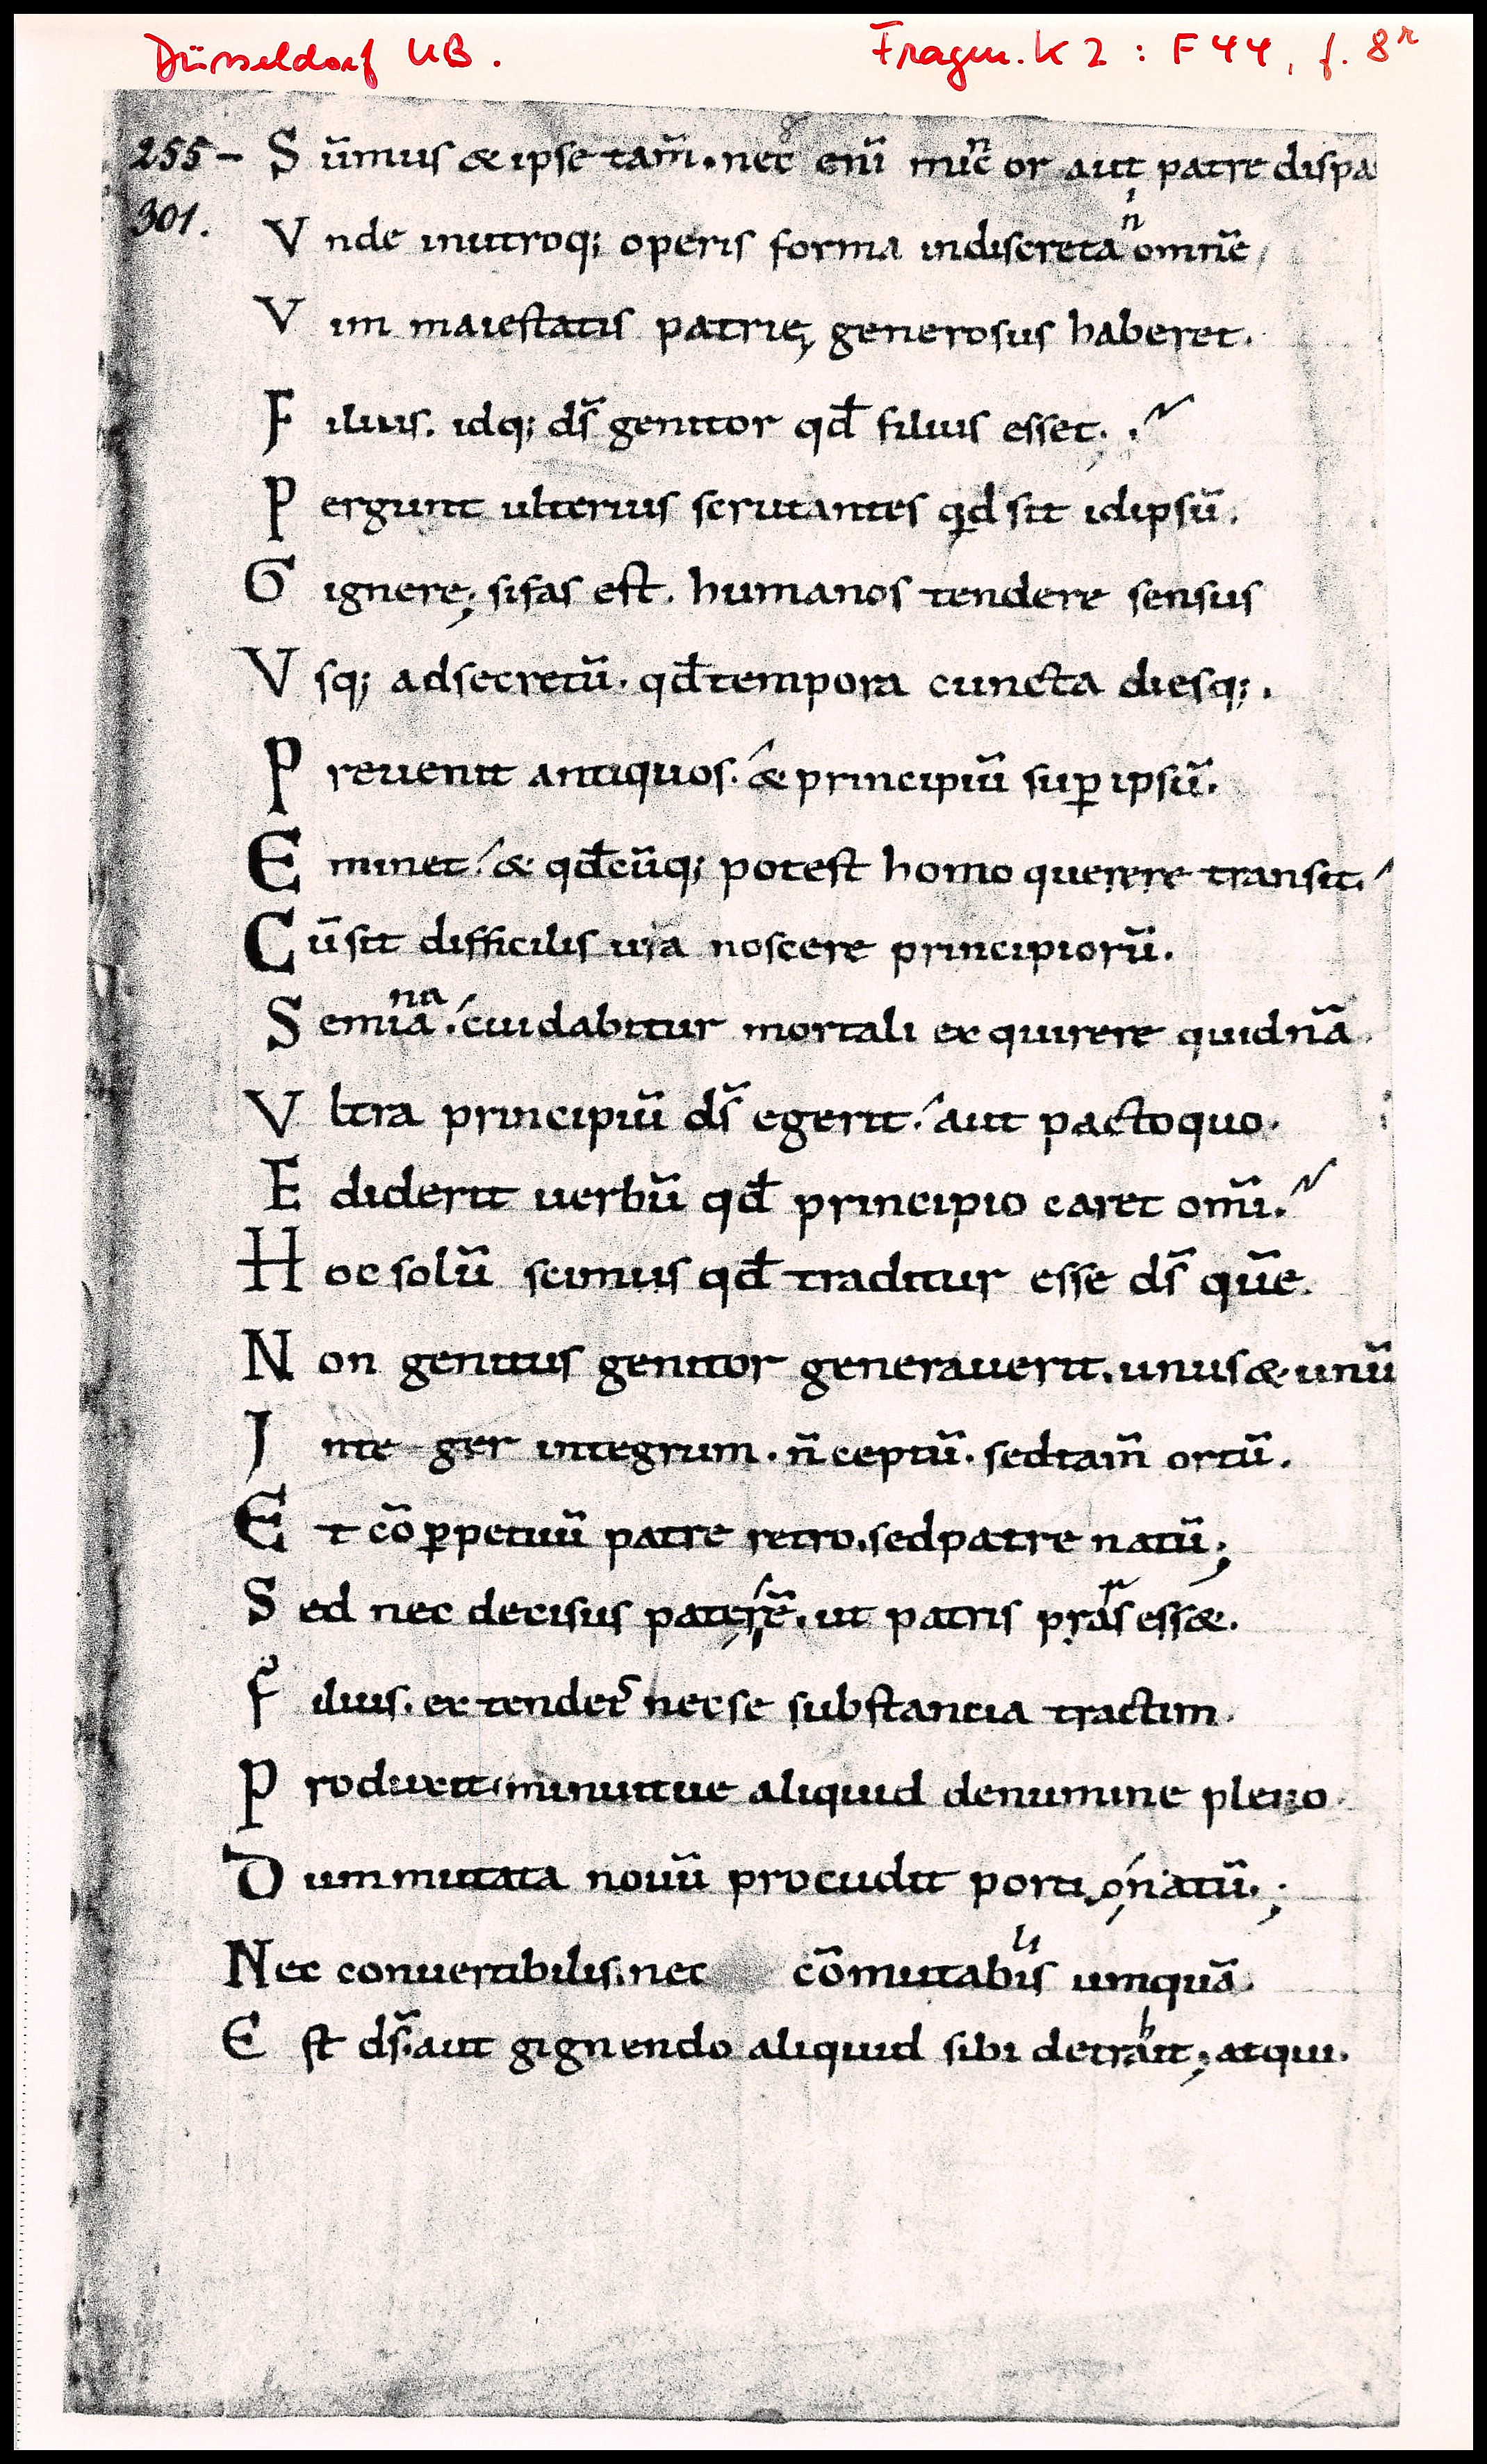 Düsseldorf UB. Fragm. K2 : F44, f. 8r
255 – Sūmus & ipse tam̄. nec enī min̄c or aut patre dispa
301. Vnde inutroq; operis forma indiscreta n omn̄e
Vim maiestatis patrię generosus haberet.
Filius. idq; ds̄ genitor qđ filius esset.
Pergunt ulterius scrutantes qd sit idipsū.
Gignere; sifas est. humanos tendere sensus
Vsq; adsecretū. qđ tempora cuncta diesq;.
Preuenit antiquos. & principiū suꝑ ipsū.
Eminet. & qđcūq; potest homo querere transit.
Cū sit difficilis uia noscere principiorū.
Semiana. cuidabitur mortali exquirere quidnā
Vltra principiū ds̄ egerit. aut pactoquo.
Ediderit uerbū qđ principio caret omī.
Hoc solū scimus qđ traditur esse ds̄ quē.
Non genitus genitor generauerit. unus & unū
Inte ger integrum. n̄ ceptū. sedtam̄ ortū.
Et cō ꝑpetuū patre retro. sedpatre natū;
Sed nec decisus pateRē. ut patris prās ess&.
Filius. extender̄ necse substantia tractim.
Produxit. minuitue aliquid denumine pleno
Dummutata nouū procudit portio natū.;
Nec conuertibilis. nec cōmutabilis umquā.
Est ds̄. aut gignendo aliquid sibi detrahit; atqui.